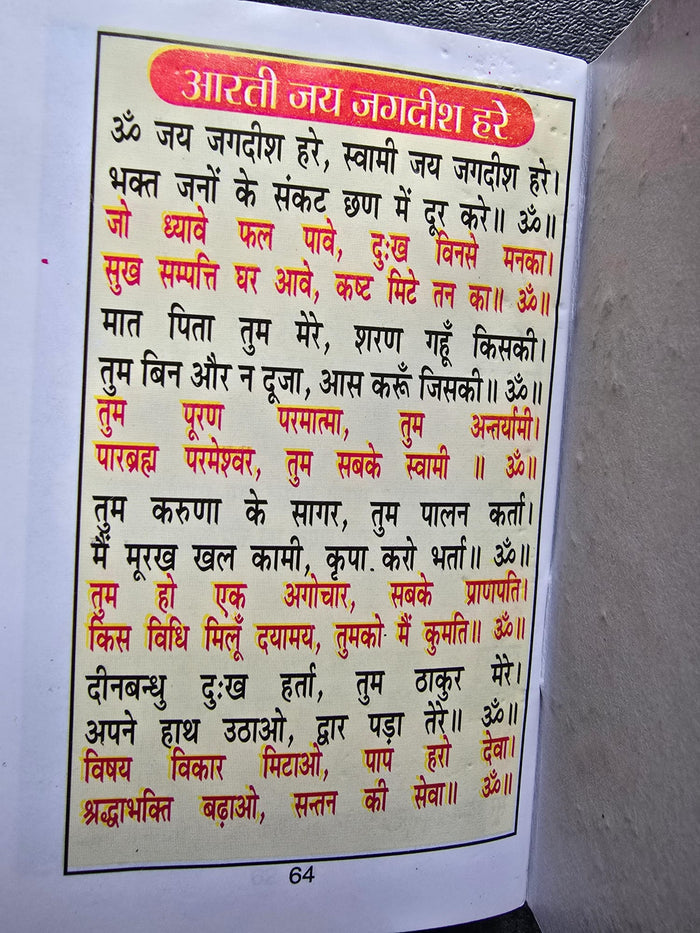 आरती जय जगदीश हरे
ॐ जय जगदीश हरे, स्वामी जय जगदीश हरे।
भक्त जनों के संकट छण में दूर करे॥ ॐ॥
जो ध्यावे फल पावे, दुःख विनसे मनका।
सुख सम्पत्ति घर आवे, कष्ट मिटे तन का॥ ॐ॥
मात पिता तुम मेरे, शरण गहूँ किसकी।
तुम बिन और न दूजा, आस करूँ जिसकी॥ ॐ॥
तुम पूरण परमात्मा, तुम अन्तर्यामी।
पारब्रह्म परमेश्वर, तुम सबके स्वामी ॥ ॐ॥
तुम करुणा के सागर, तुम पालन कर्ता।
मैं मूरख खल कामी, कृपा करो भर्ता॥ ॐ॥
तुम हो एक अगोचार, सबके प्राणपति।
किस विधि मिलूँ दयामय, तुमको मैं कुमति॥ ॐ॥
दीनबन्धु दुःख हर्ता, तुम ठाकुर मेरे।
अपने हाथ उठाओ, द्वार पड़ा तेरे॥ ॐ॥
विषय विकार मिटाओ, पाप हरो देवा।
श्रद्धाभक्ति बढ़ाओ, सन्तन की सेवा॥ ॐ॥
64